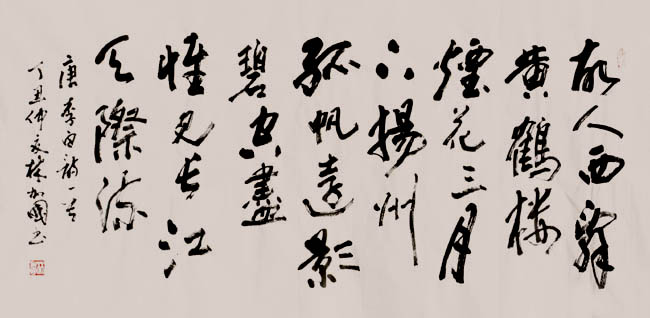 故人西辭
黄鶴楼
煙花三月
下揚州
孤帆遠影
碧空盡
惟見長江
天際流
唐李白詩一首
丁丑仲夏國书